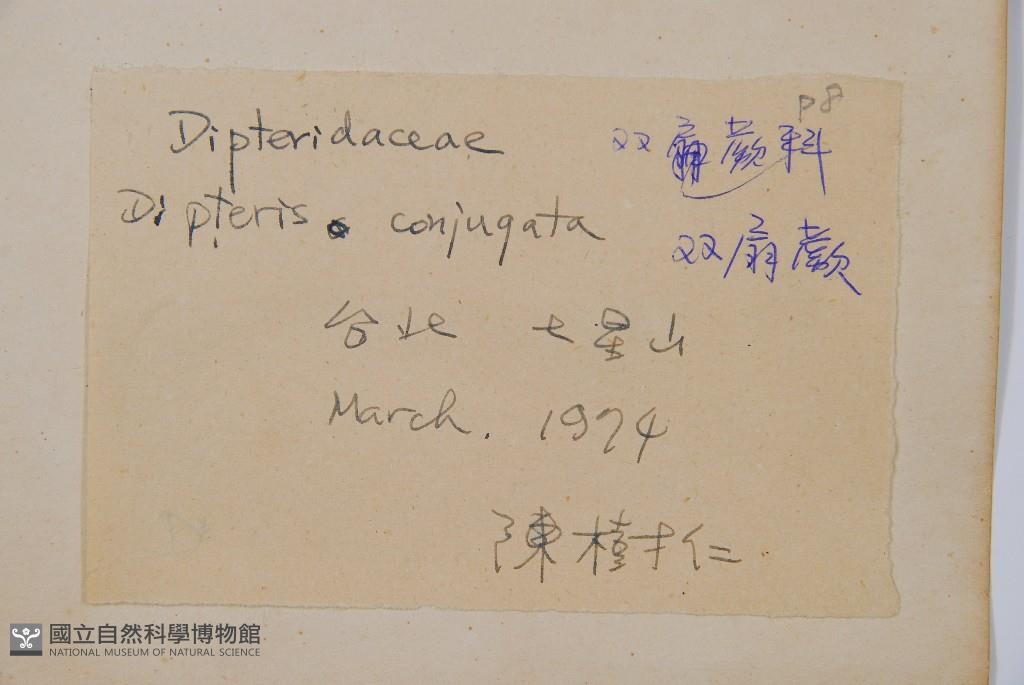 p8
Dipteridaceae 双扇蕨科
Dipteris conjugata 双扇蕨
台北 七星山
March. 1974
陳樹仁
國立自然科學博物館
NATIONAL MUSEUM OF NATURAL SCIENCE